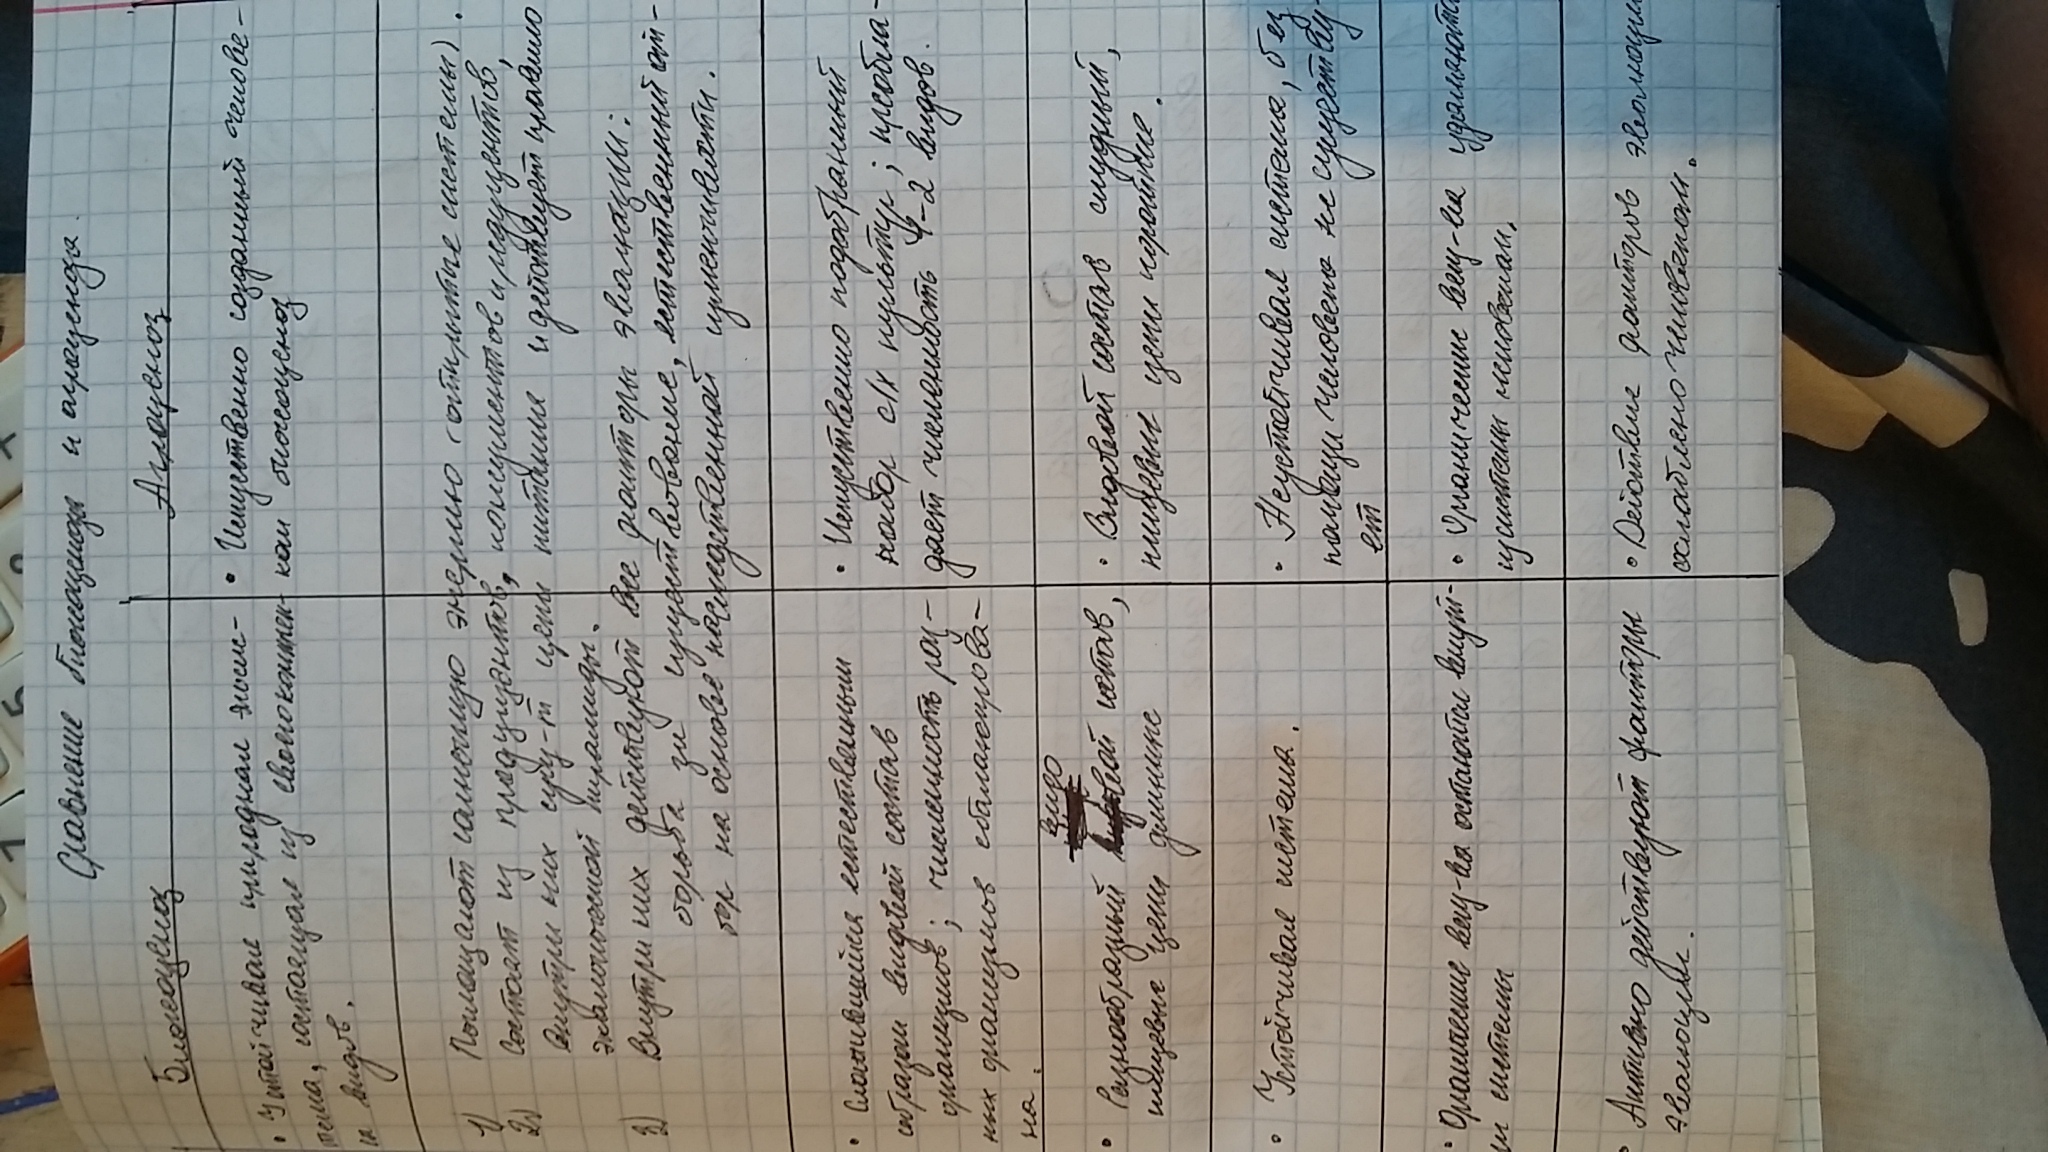 Сравнение биогеоценоза и агроценоза.
Биогеоценоз Агроценоз
• Устойчивая природная экосис-
тема, состоящая из свойственных
ей видов.
• Искусственно созданный челове-
ком биогеоценоз
1) Поглощают солнечную энергию (открытые системы).
2) Состоят из продуцентов, консументов и редуцентов,
внутри них сущ-т цепи питания и действует правило
экологической пирамиды.
3) Внутри них действуют все факторы эволюции:
борьба за существование, естественный от-
бор на основе наследственной изменчивости.
• Сложившийся естественным
образом видовой состав
организмов; численность раз-
ных организмов сбалансирова-
на.
• Искусственно подобранный
набор с/х культур; преобла-
дает численность 1-2 видов.
• Разнообразный видовой состав,
пищевые цепи длинные
• Видовой состав скудный,
пищевые цепи короткие.
• Устойчивая система.
• Неустойчивая система, без
помощи человека не существу-
ет
• Органические вещ-ва остаются внут-
ри системы
• Органические вещ-ва удаляются
из системы человеком.
• Активно действуют факторы
эволюции.
• Действие факторов эволюции
ослаблено человеком.